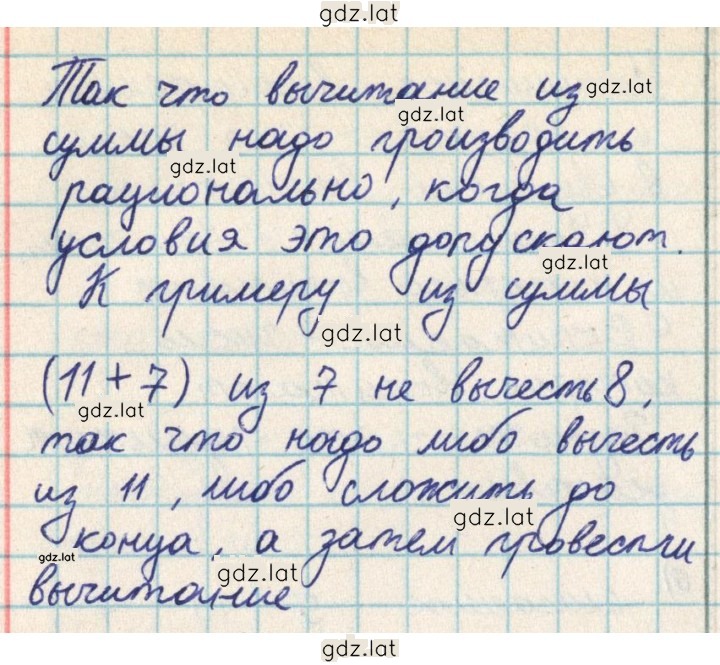 gdz.lat
Так что вычитание из gdz.lat
gdz.lat
суммы надо производить
gdz.lat
рационально, когда
условия это допускают.
gdz.lat
К примеру из суммы
gdz.lat
(11 + 7) из 7 не вычесть 8,
gdz.lat
так что надо либо вычесть
из 11, либо сложить до
gdz.lat
конца, а затем провести
gdz.lat
gdz.lat
вычитание
gdz.lat